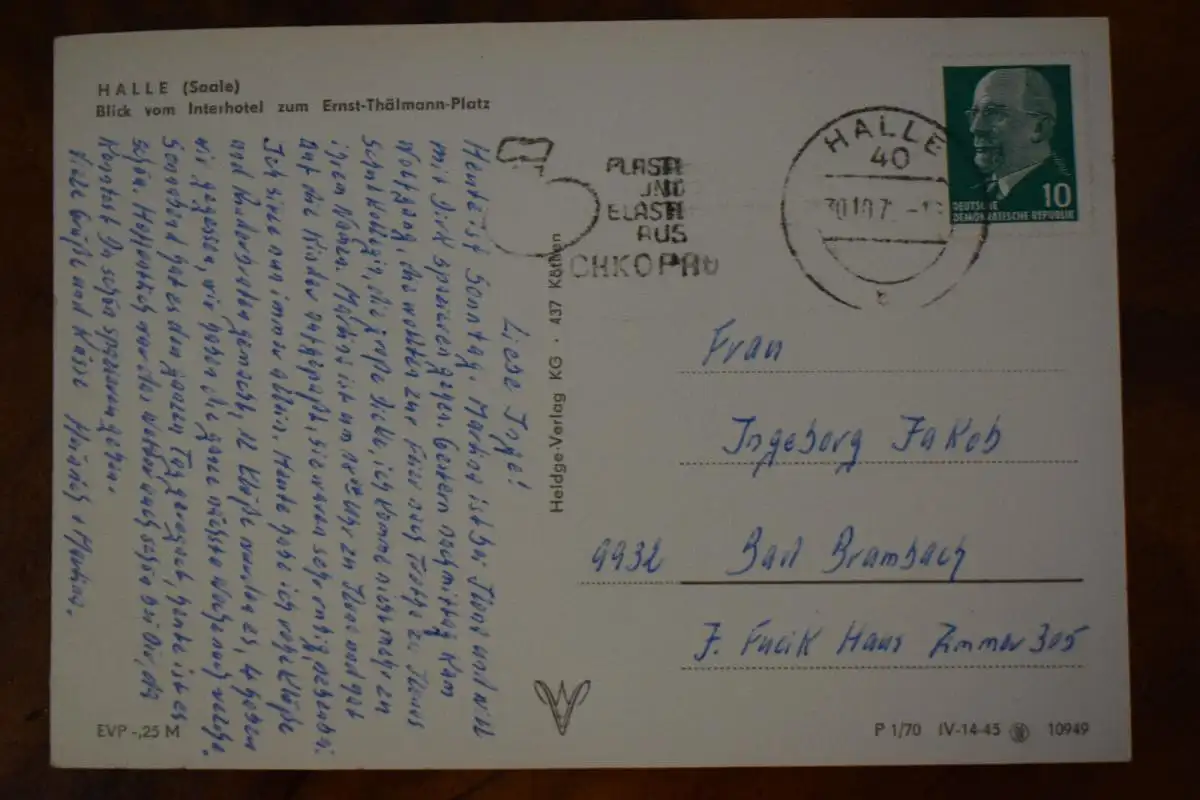 HALLE (Saale)
Blick vom Interhotel zum Ernst-Thälmann-Platz
Liebe Inge!
Heute ist Sonntag. Markus ist bei Ilone und will
mit Dirk spazieren gehen. Gestern nachmittag kam
Wolfgang, die wollten zur Feier nach Trotha zu
Schulkollegin, die große Dicke, ich komme nicht mehr zu
ihren Namen. Markus ist um Uhr zu Ilone und hat
auf die Kinder aufgepaßt, sie waren sehr artig,
Ich sitze nun immer allein. Heute habe ich rohe Klöße
und Rinderbraten gemacht, 12 Klöße wurden es, 4 haben
wir gegessen, wir haben die ganze nächste Woche noch welche.
Sonnabend hat es den ganzen Tag geregnet, heute ist es
schön. Hoffentlich war das Wetter auch schön bei Dir, daß
Konntest Du schön spazieren gehen.
Viele Grüße und Küsse
PLASTE
UND
ELASTE
AUS
CHKOPAU
HALLE
40
30.10.7
DEUTSCHE
DEMOKRATISCHE REPUBLIK
10
Heldge-Verlag KG · 437 Köthen
Frau
Ingeborg Jakob
9932 Bad Brambach
J. Fucik Haus Zimmer 305
EVP -,25 M
P 1/70 IV-14-45 10949